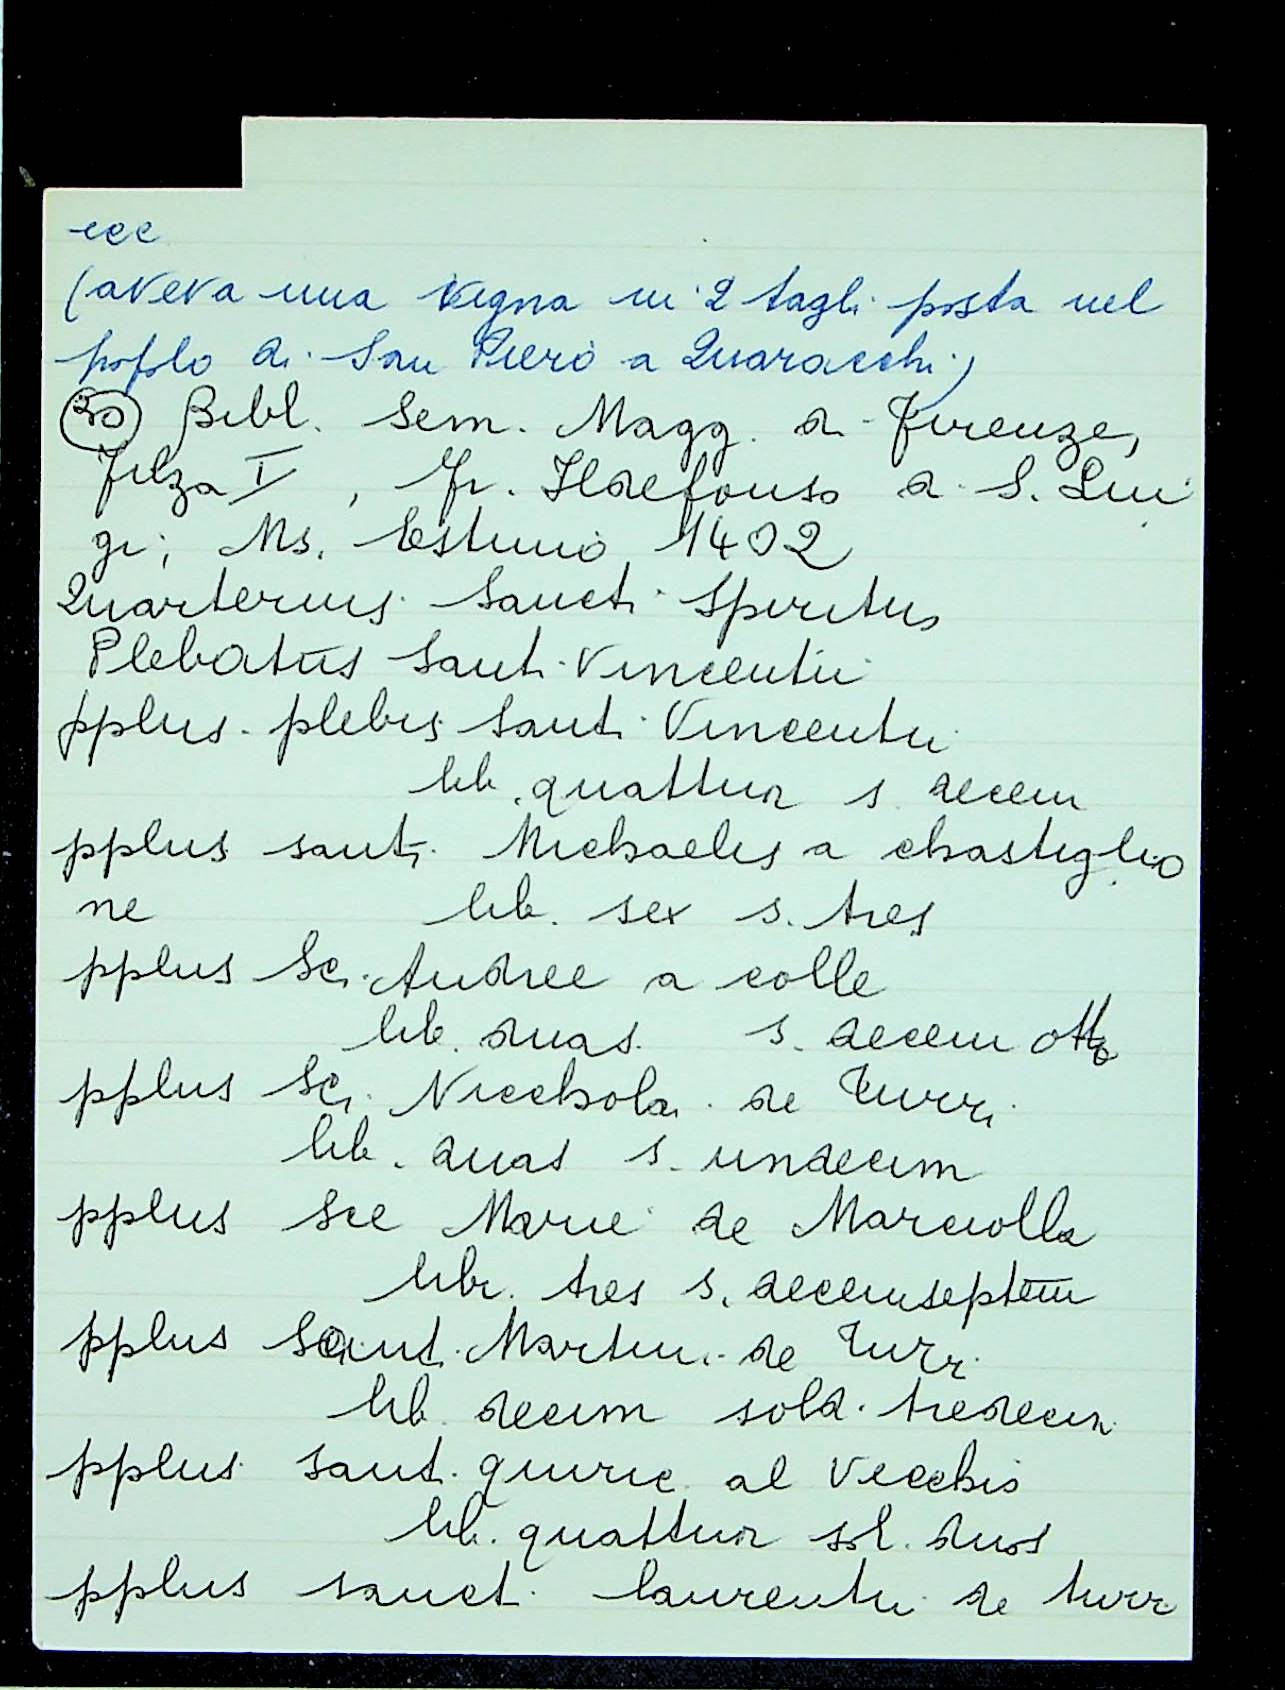 ecc
(aveva una vigna in 2 tagli posta nel
popolo di San Piero a Quaracchi)
30 Bibl. Sem. Magg. di Firenze,
Filza I, Fr. Ildefonso di S. Lui
gi; Ms. Estimo 1402
Quarterius Sancti Spiritus
Plebatus Santi Vincentii
pplus plebis Santi Vincentii
lib. quattur s. decem
pplus santi Michaelis a chastiglio
ne lib. sex s. tres
pplus Sci. Andree a colle
lib. duas s. decem otto
pplus Sci. Nicchola de Turri
lib. duas s. undecim
pplus See Marie de Marciolla
libr. tres s. decemseptem
pplus Sant. Martini de Turri
lib. decim sold. tredecim
pplus sant. quiric al Vecchio
lib. quattuor sol. duos
pplus sanct. laurentii de turri